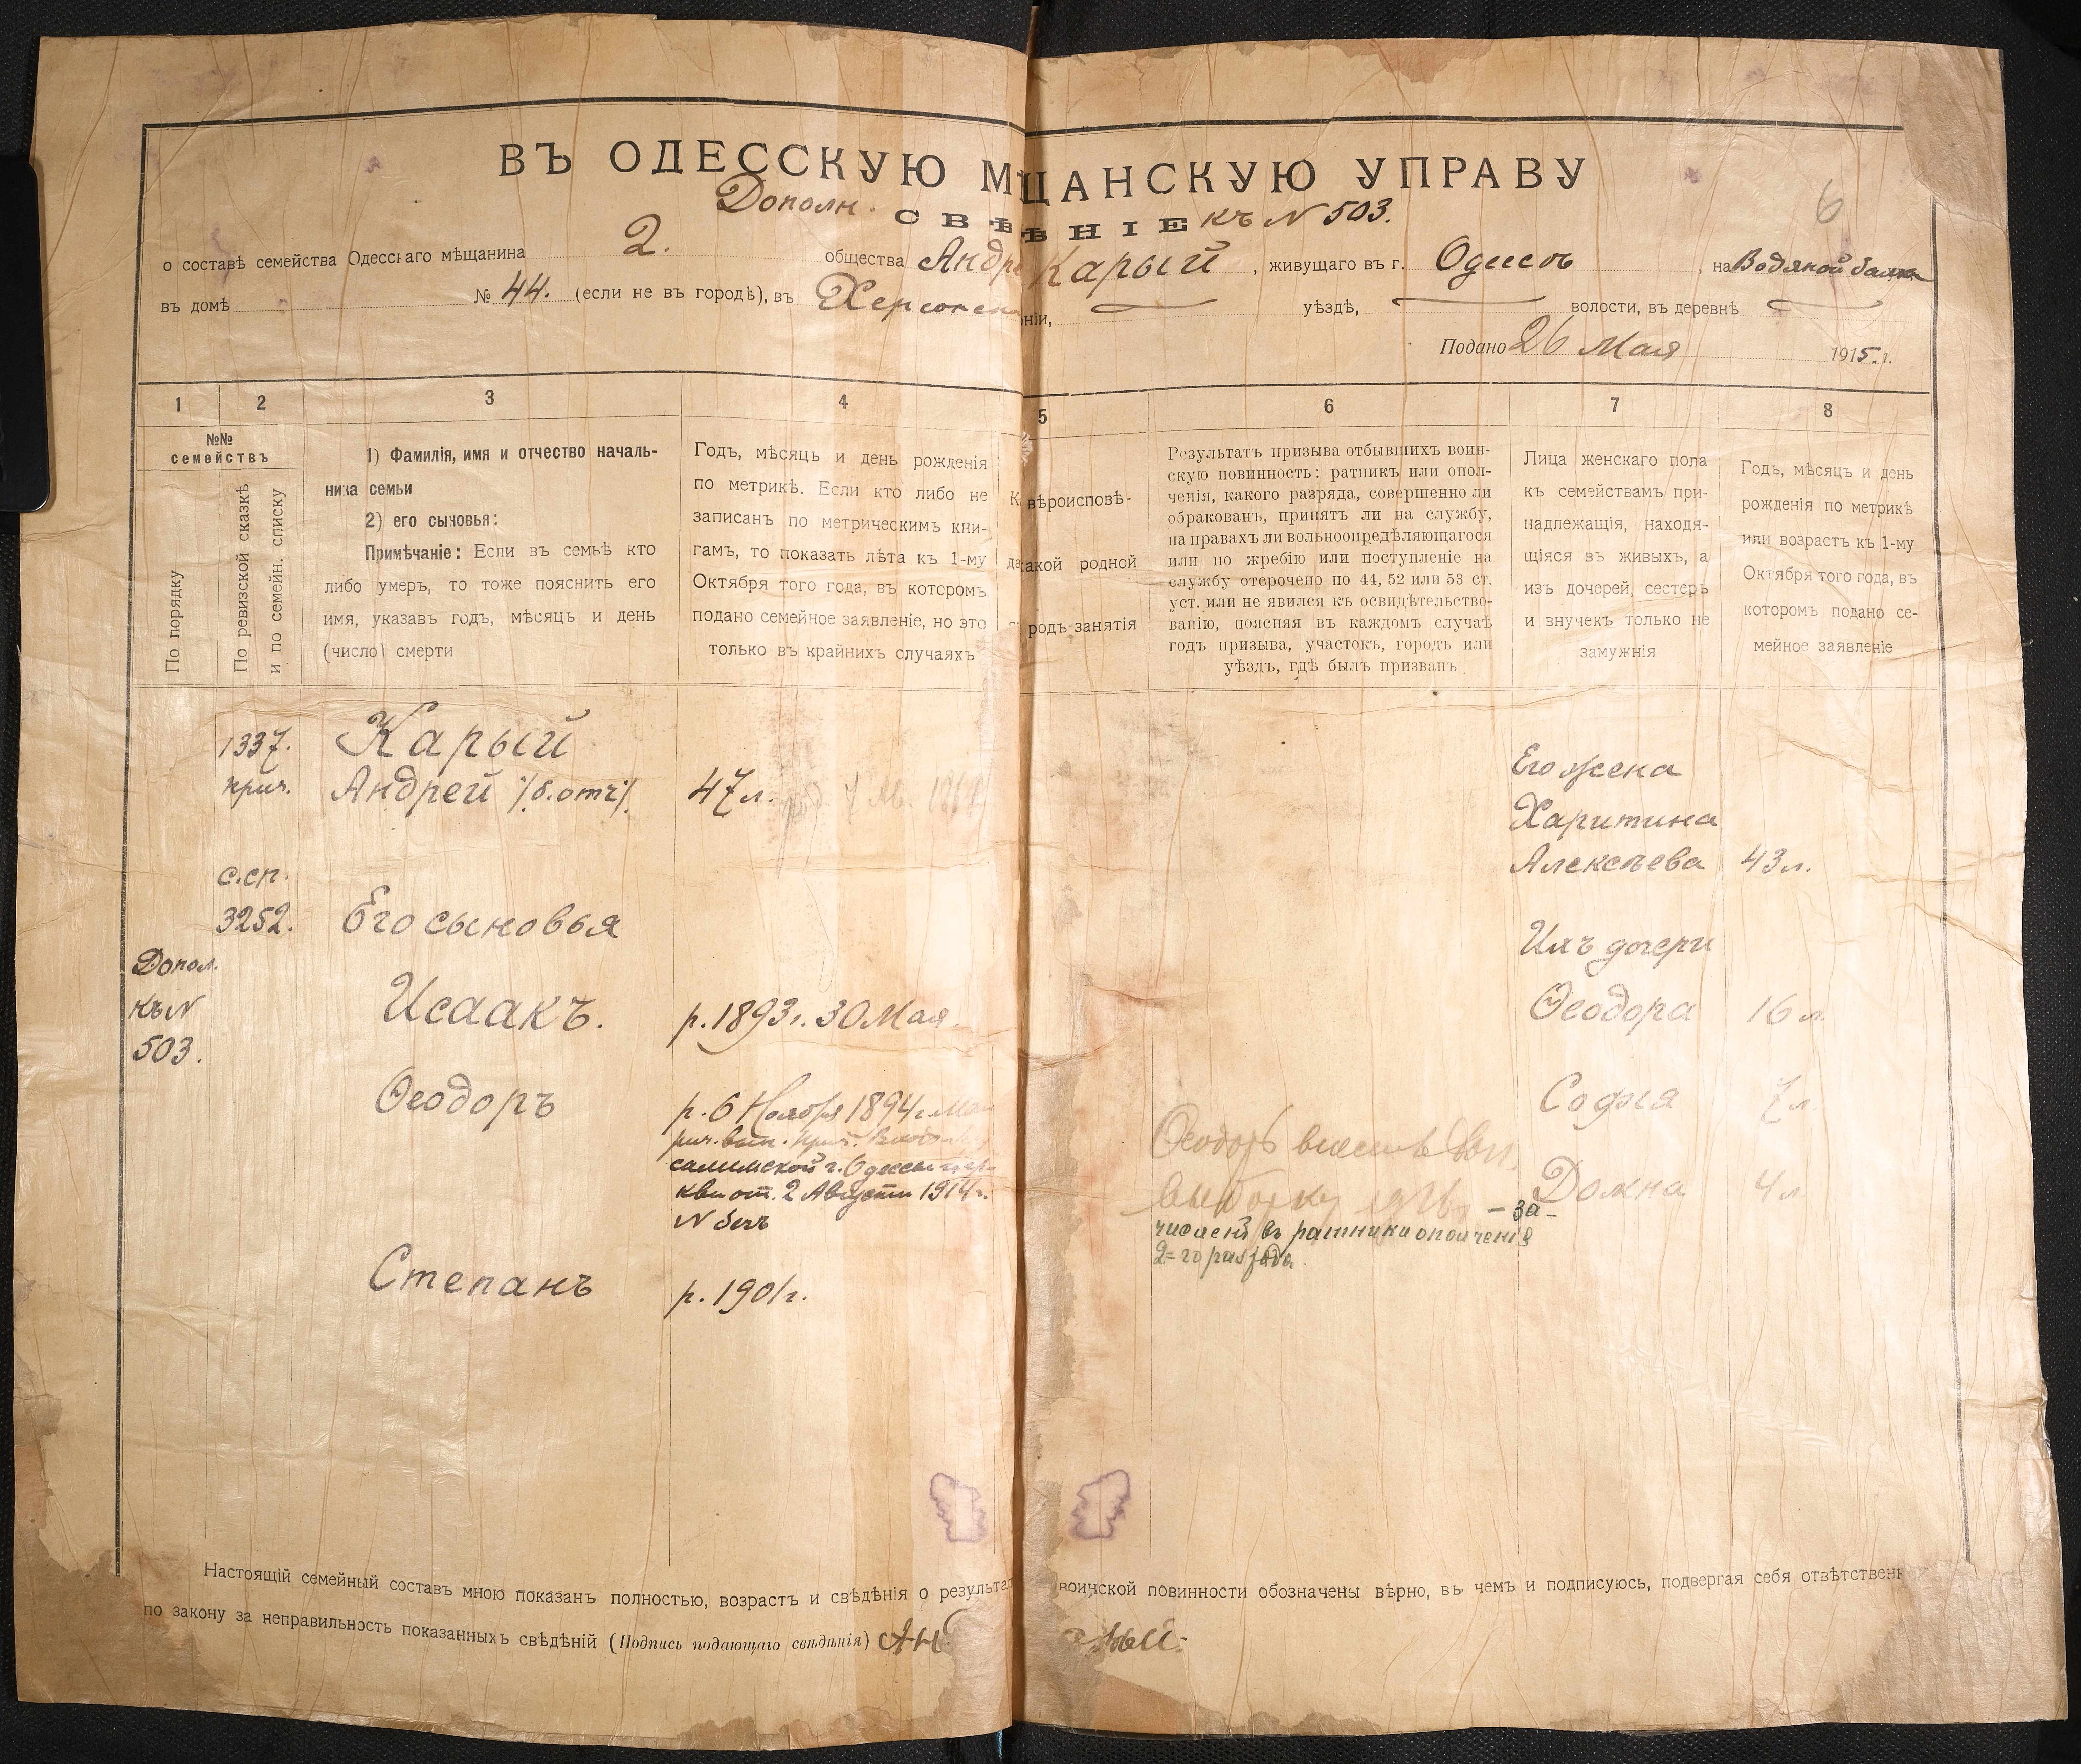 ВЪ ОДЕССКУЮ М ЩАНСКУЮ УПРАВУ
Дополн. СВѢ ѢНІЕ къ N 503.
6
о составѣ семейства Одесскаго мѣщанина 2. общества Андре Карый, живущаго въ г. Одессѣ, на Водяной балкѣ
въ домѣ № 44. (если не въ городѣ), въ Херсонск рніи, уѣздѣ, волости, въ деревнѣ
Подано 26 Мая 1915 г.
1 2 3 4 5 6 7 8
№№ семействъ
По порядку
По ревизской сказкѣ
и по семейн. списку
1) Фамилія, имя и отчество началь-
ника семьи
2) его сыновья:
Примѣчаніе: Если въ семьѣ кто
либо умеръ, то тоже пояснить его
имя, указавъ годъ, мѣсяцъ и день
(число) смерти
Годъ, мѣсяцъ и день рожденія
по метрикѣ. Если кто либо не
записанъ по метрическимъ кни-
гамъ, то показать лѣта къ 1-му
Октября того года, въ которомъ
подано семейное заявленіе, но это
только въ крайнихъ случаяхъ
К вѣроисповѣ-
да акой родной
родъ занятія
Результатъ призыва отбывшихъ воин-
скую повинность: ратникъ или опол-
ченія, какого разряда, совершенно ли
обракованъ, принятъ ли на службу,
на правахъ ли вольноопредѣляющагося
или по жребію или поступленіе на
службу отсрочено по 44, 52 или 53 ст.
уст. или не явился къ освидѣтельство-
ванію, поясняя въ каждомъ случаѣ
годъ призыва, участокъ, городъ или
уѣздъ, гдѣ былъ призванъ
Лица женскаго пола
къ семействамъ при-
надлежащія, находя-
щіяся въ живыхъ, а
изъ дочерей, сестеръ
и внучекъ только не
замужнія
Годъ, мѣсяцъ и день
рожденія по метрикѣ
или возрастъ къ 1-му
Октября того года, въ
которомъ подано се-
мейное заявленіе
1337. Карый
прич. Андрей /б. отч/. 47 л.
с. сп.
3252. Его сыновья
Допол.
къ N
503.
Исаакъ. р. 1893 г. 30 Мая.
Ѳеодоръ р. 6 Ноября 1894 г.
салимской г. Одессы цер-
кви от. 2 Августа 1914 г.
N безъ
Степанъ р. 1901 г.
Ѳеодоръ внесенъ
выборку
- за-
численъ въ ратники ополченія
2=го разряда.
Его жена
Харитина
Алексѣева 43 л.
Ихъ дочери
Ѳеодора 16 л.
София 7 л.
Домна 4 л
Настоящій семейный составъ мною показанъ полностью, возрастъ и свѣдѣнія о результат воинской повинности обозначены вѣрно, въ чемъ и подписуюсь, подвергая себя отвѣтствен
по закону за неправильность показанныхъ свѣдѣній (Подпись подающаго свѣдѣнія) Ан